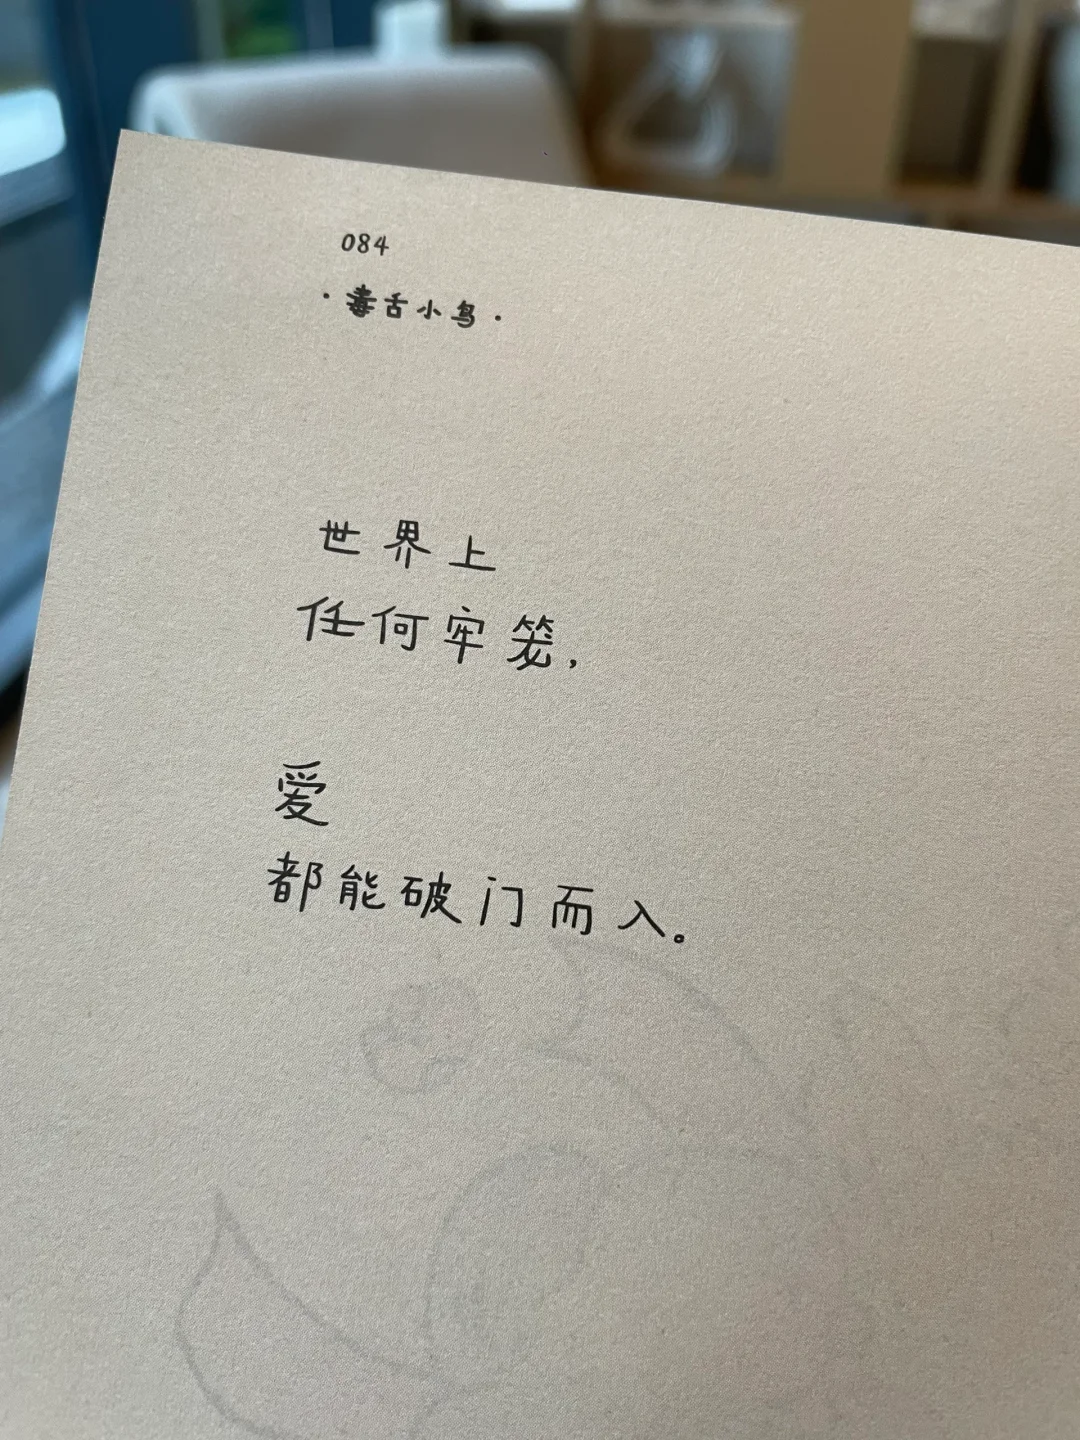 084
·毒舌小鸟·
世界上
任何牢笼，
爱
都能破门而入。